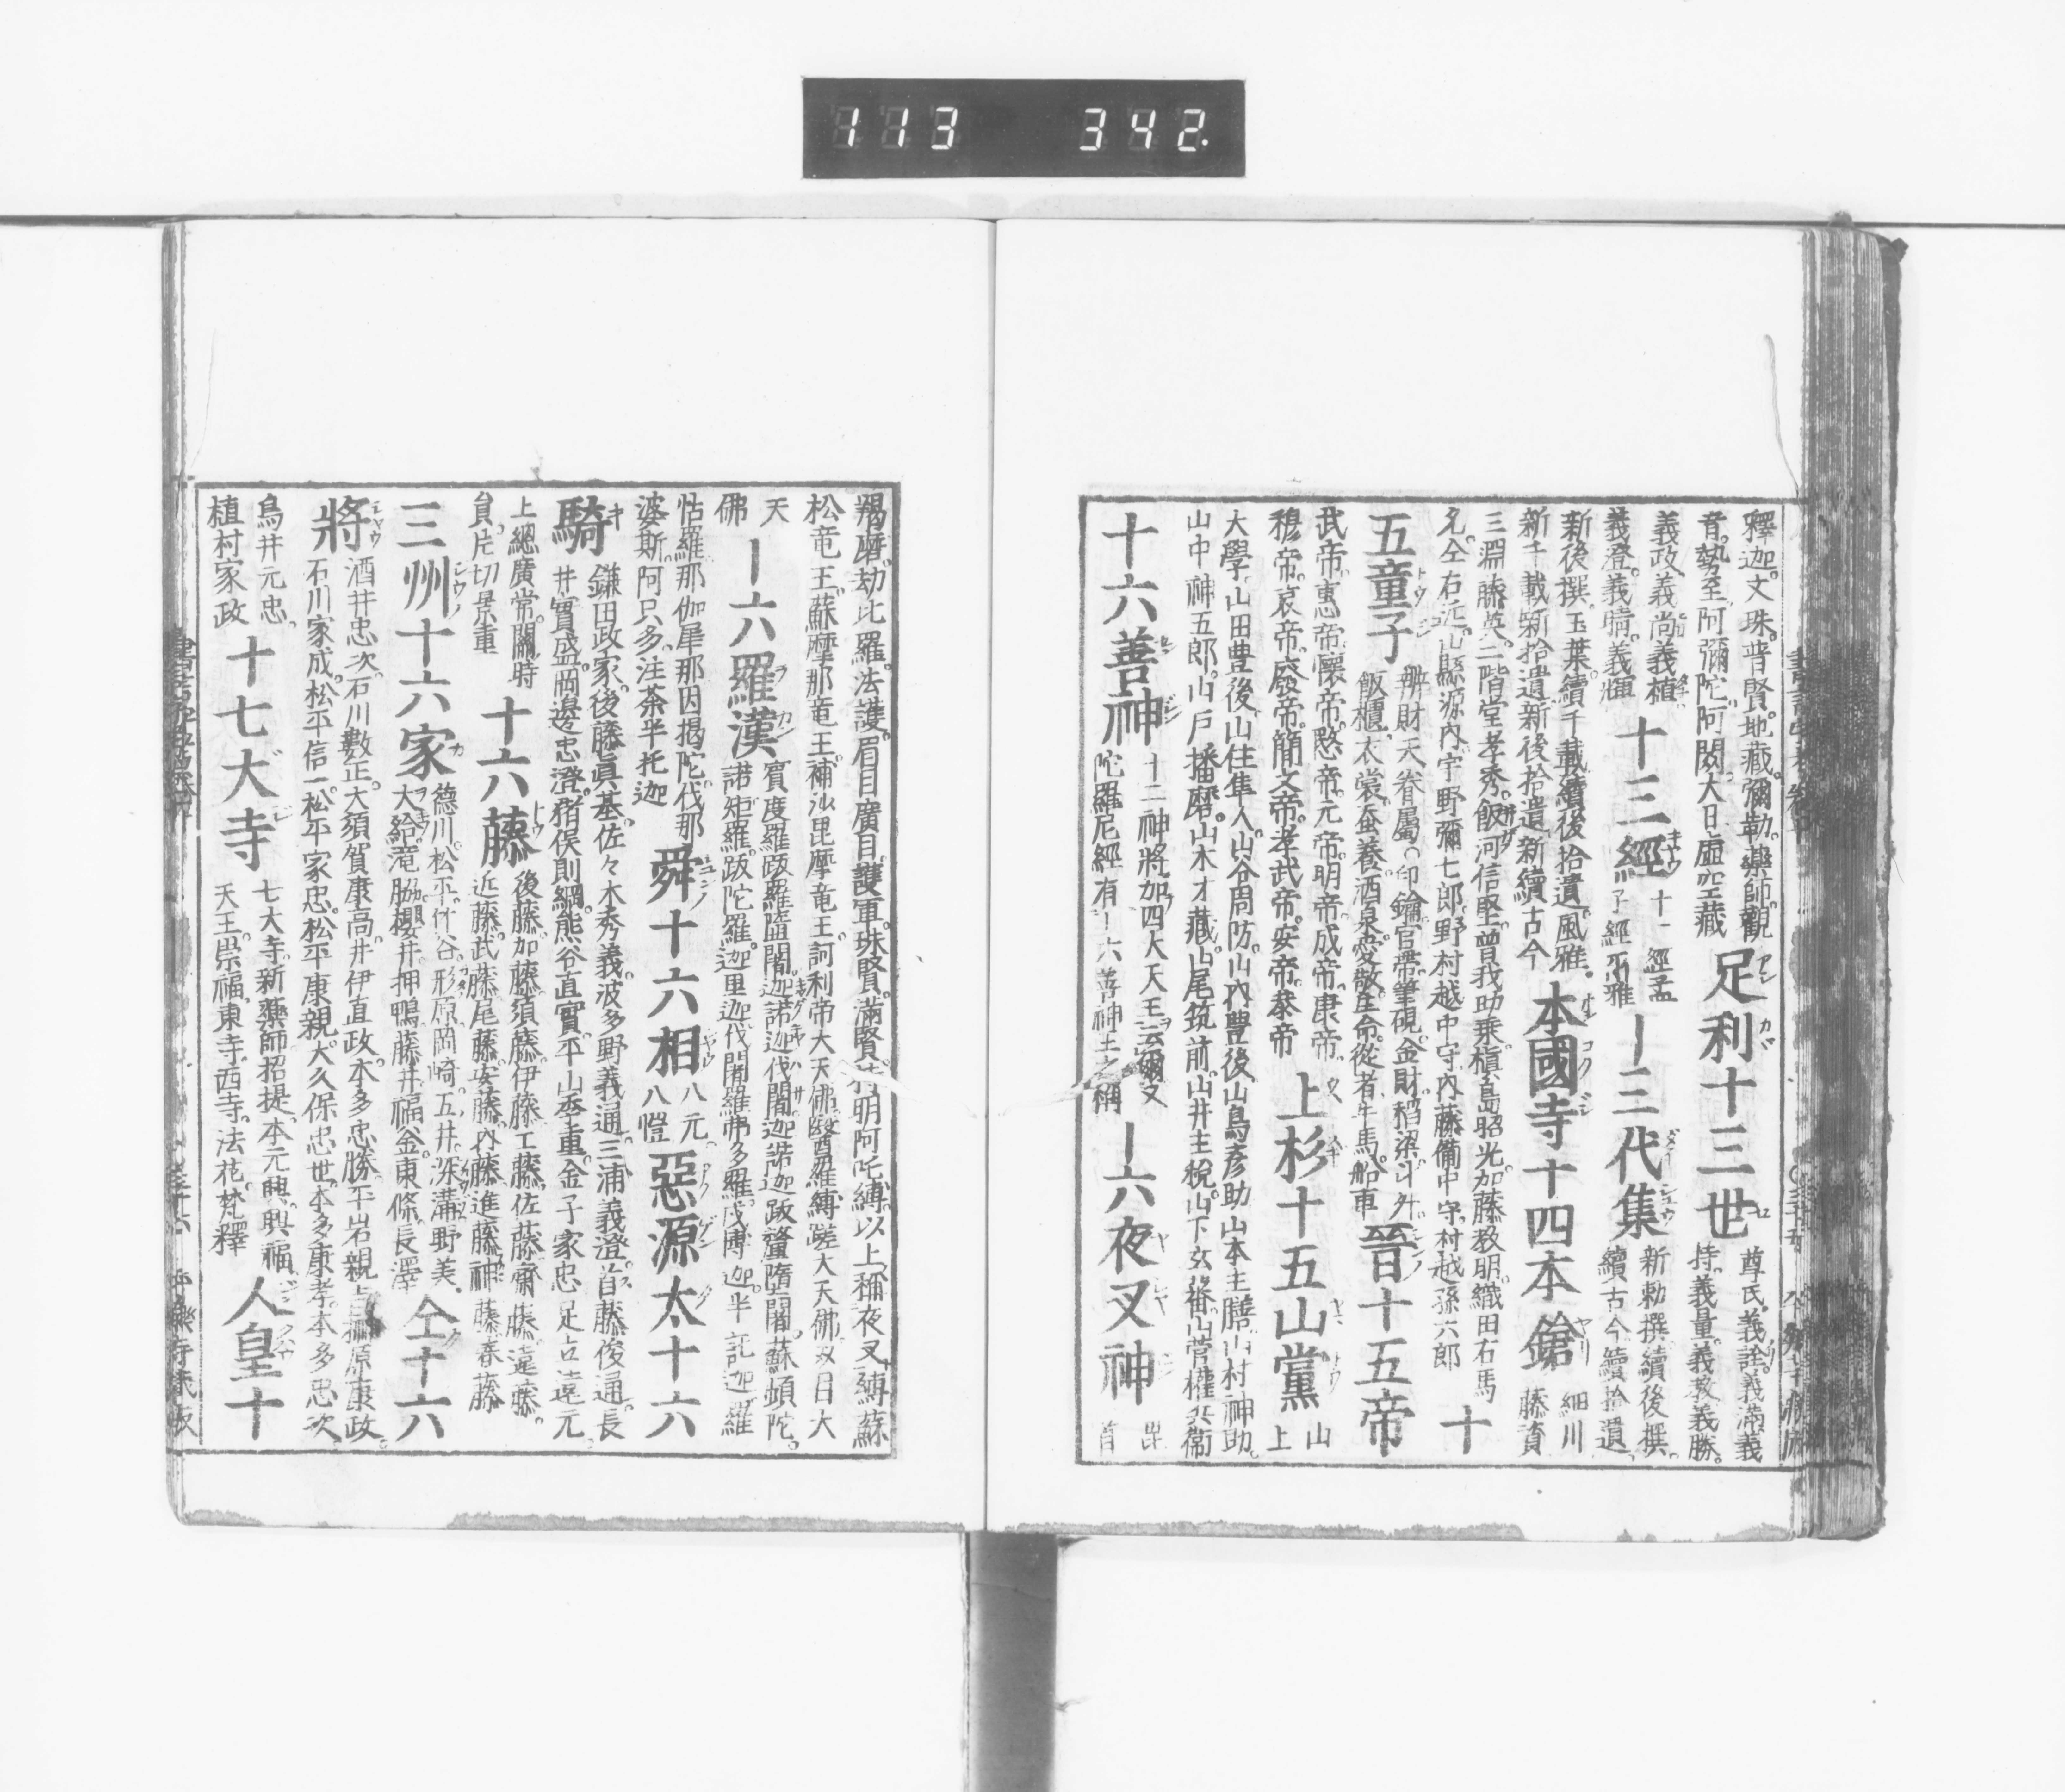 113 342.
釋迦。文珠。普賢。地藏。彌勒。藥師。觀
音。勢至。阿彌陀。阿閦。大日。虛空藏
足利十三世
尊氏。義詮。義滿。義
持。義量。義教。義勝。
義政。義尚。義植
義澄。義晴。義輝
十三經
十一經孟
子經爾雅
十三代集
新勅撰。續後撰。
續古今。續拾遺。
新後撰。玉葉。續千載。續後拾遺。風雅。
新千載。新拾遺。新後拾遺。新續古今
本國寺十四本鎗
細川
藤資
三淵藤英。二階堂孝秀。飯河信堅。曾我助乗。槇島昭光。加藤教明。織田右馬
允。仝右近。山縣源内。宇野彌七郎。野村越中守。内藤備中守。村越孫六郎
十
五童子
辨財天眷屬。印鑰。官帶。筆硯。金財。稻梁。斗外。
飯櫃。衣裳。蚕養。酒泉。愛敬。生命。從者。牛馬。船車
晉十五帝
武帝。惠帝。懷帝。愍帝。元帝。明帝。成帝。康帝。
穆帝。哀帝。廢帝。簡文帝。孝武帝。安帝。恭帝
上杉十五山黨
山
上
大學。山田豊後。山住隼人。山谷周防。山内豊後。山鳥彦助。山本主膳。山村神助。
山中神五郎。山戸播磨。山木才藏。山尾筑前。山井主税。山下玄蕃。山菅權兵衞
十六善神
十二神將加四大天王云爾又
陀羅尼經有十六善神王之稱
十六夜叉神
毘
首
羯磨。劫比羅。法護。眉目。廣目。護軍。珠賢。滿賢。持明。阿吒縛。以上稱夜叉。縛蘇
松竜王。蘇摩那竜王。補沙毘摩竜王。訶利帝大天佛。醫羅縛蹉大天佛。双目大
天
佛
十六羅漢
賓度羅跋羅墮闍。迦諾迦伐蹉。迦諾迦跋釐墮闍。蘇頻陀。
諾矩羅。跋陀羅。迦里迦。伐闍羅弗多羅。戍博迦。半託迦。羅
怙羅。那伽犀那。因掲陀。伐那
婆斯。阿只多。注荼半托迦
舜十六相
八元
八愷
惡源太十六
騎
鎌田政家。後藤眞基。佐々木秀義。波多野義通。三浦義澄。首藤俊通。長
井實盛。岡邊忠澄。猪俣則綱。熊谷直實。平山季重。金子家忠。足立遠元。
上總廣常。關時
員。片切景重
十六藤
後藤。加藤。須藤。伊藤。工藤。佐藤。齋藤。遠藤。
近藤。武藤。尾藤。安藤。内藤。進藤。神藤。春藤
三州十六家
德川。松平。竹谷。形原。岡崎。五井。深溝。野美。
大給。滝脇。櫻井。押鴨。藤井。福釜。東條。長澤
仝十六
將
酒井忠次。石川數正。大須賀康高。井伊直政。本多忠勝。平岩親吉。榊原康政。
石川家成。松平信一。松平家忠。松平康親。大久保忠世。本多康孝。本多忠次。
鳥井元忠。
植村家政
十七大寺
七大寺。新藥師。招提。本元興。興福。
天王。崇福。東寺。西寺。法花。梵釋
人皇十